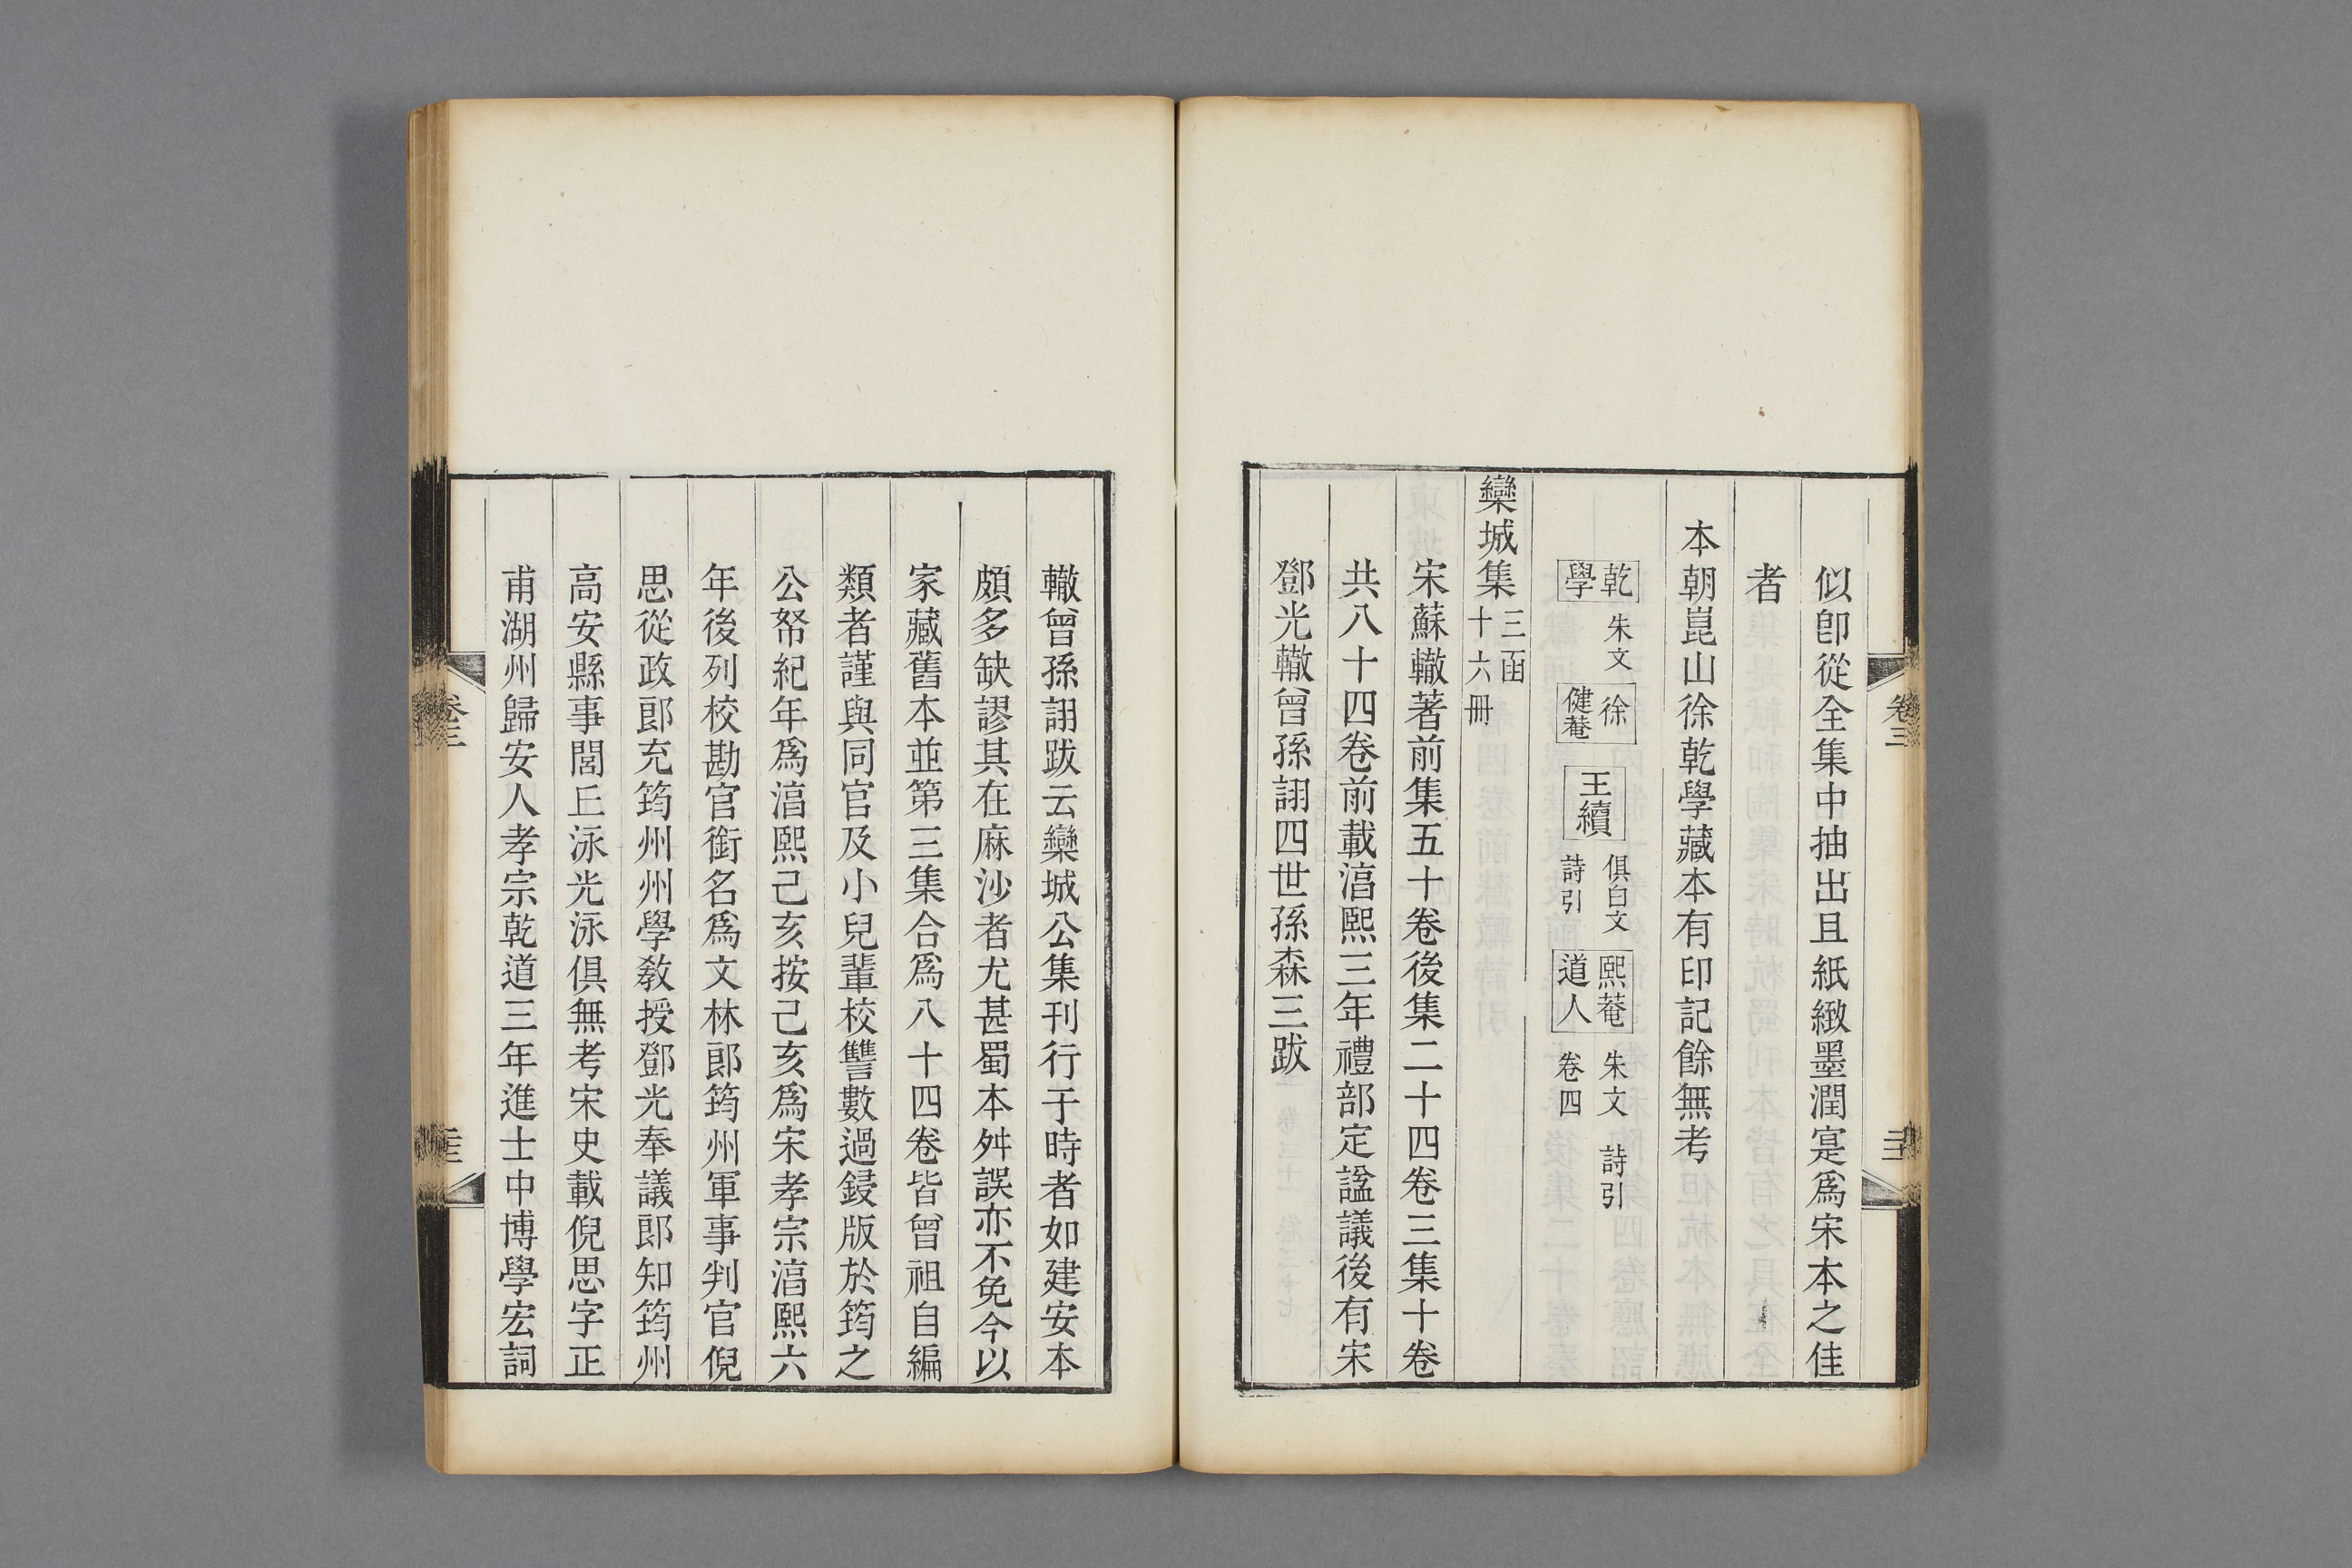 似卽從全集中抽出且紙緻墨潤寔爲宋本之佳
者
本朝崑山徐乾學藏本有印記餘無考
乾學 朱文 徐健菴 王續 俱白文 詩引 熙菴道人 朱文 卷四 詩引
欒城集 三函 十六冊
宋蘇轍著前集五十卷後集二十四卷三集十卷
共八十四卷前載淳熙三年禮部定諡議後有宋
鄧光轍曾孫詡四世孫森三跋
卷三
轍曾孫詡跋云欒城公集刊行于時者如建安本
頗多缺謬其在麻沙者尤甚蜀本舛誤亦不免今以
家藏舊本並第三集合爲八十四卷皆曾祖自編
類者謹與同官及小兒輩校讐數過鋟版於筠之
公帑紀年爲淳熙己亥按己亥爲宋孝宗淳熙六
年後列校勘官銜名爲文林郎筠州軍事判官倪
思從政郎充筠州州學敎授鄧光奉議郎知筠州
高安縣事閭丘泳光泳俱無考宋史載倪思字正
甫湖州歸安人孝宗乾道三年進士中博學宏詞
卷三